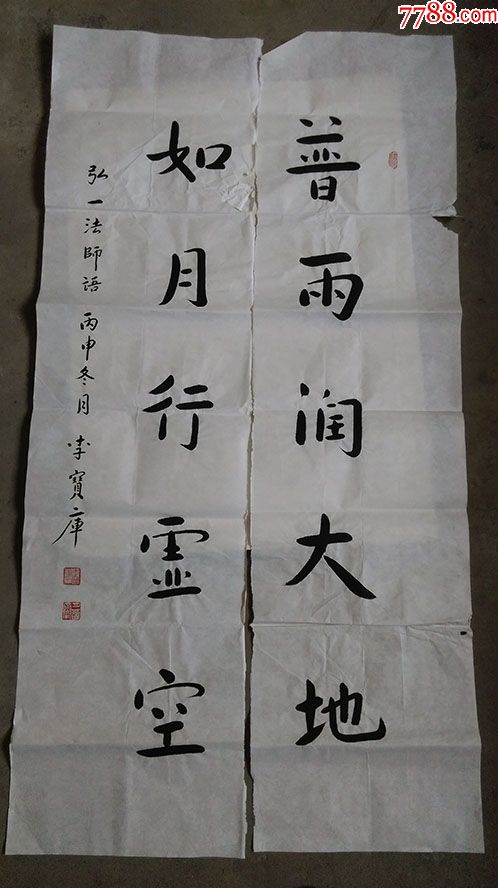 7788.com
普雨润大地
如月行霊空
弘一法師語 丙申冬月 李寶庫